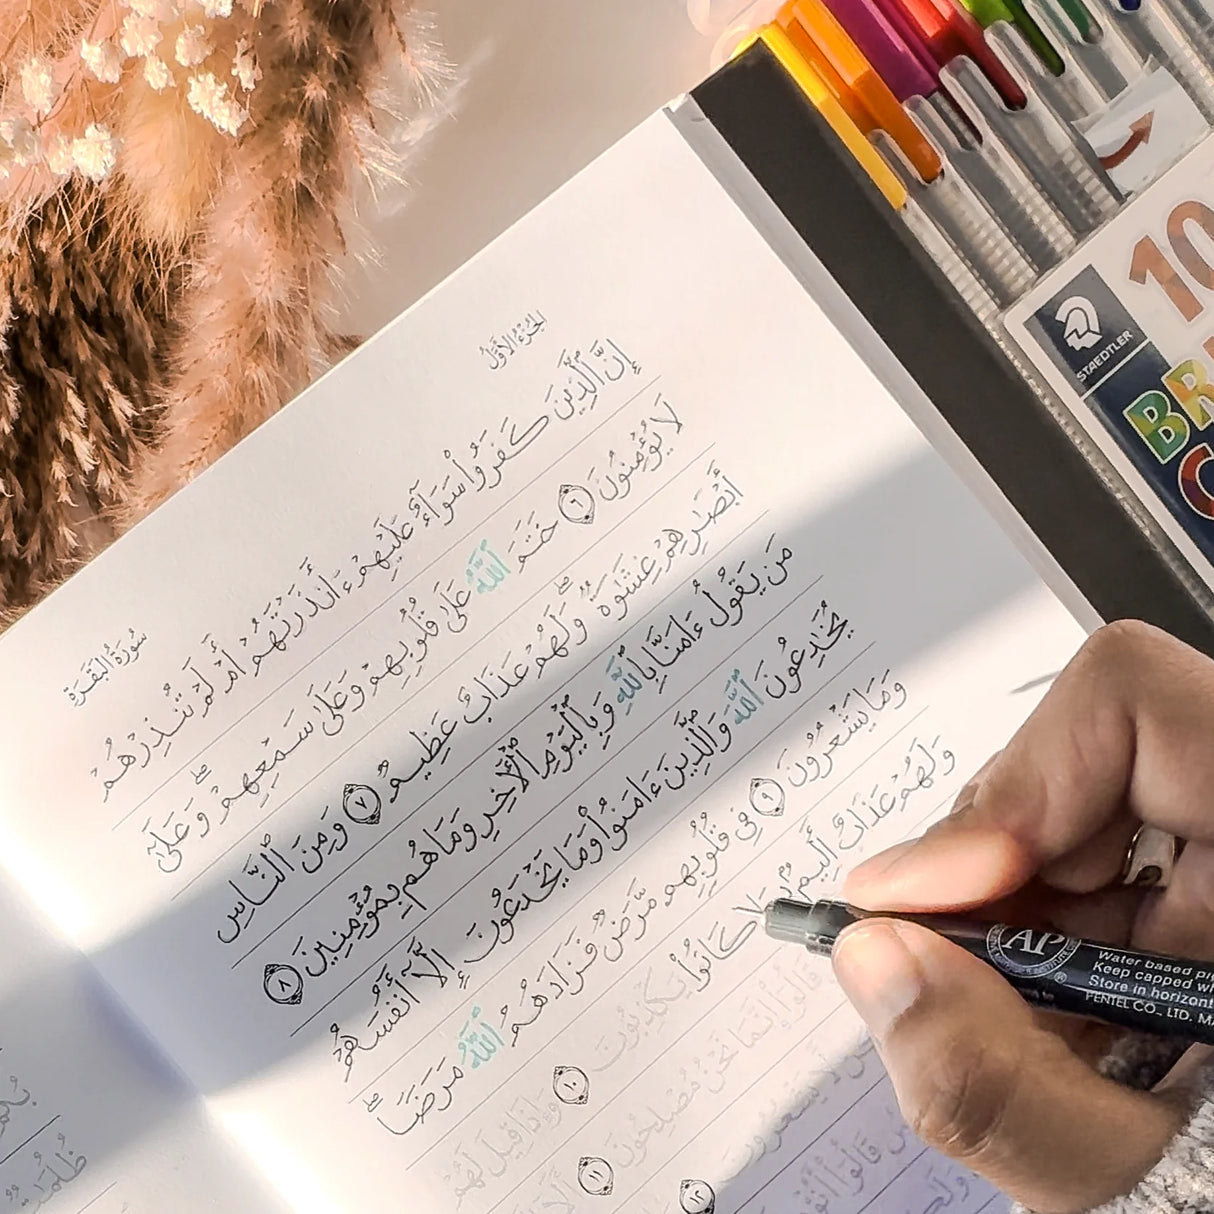 الجُزْءُ الأَوَّلُ
سُورَةُ البَقَرَةِ
إِنَّ ٱلَّذِينَ كَفَرُوا۟ سَوَآءٌ عَلَيْهِمْ ءَأَنذَرْتَهُمْ أَمْ لَمْ تُنذِرْهُمْ
لَا يُؤْمِنُونَ ٦ خَتَمَ ٱللَّهُ عَلَىٰ قُلُوبِهِمْ وَعَلَىٰ سَمْعِهِمْ ۖ وَعَلَىٰٓ
أَبْصَـٰرِهِمْ غِشَـٰوَةٌ ۖ وَلَهُمْ عَذَابٌ عَظِيمٌ ٧ وَمِنَ ٱلنَّاسِ
مَن يَقُولُ ءَامَنَّا بِٱللَّهِ وَبِٱلْيَوْمِ ٱلْـَٔاخِرِ وَمَا هُم بِمُؤْمِنِينَ ٨
يُخَـٰدِعُونَ ٱللَّهَ وَٱلَّذِينَ ءَامَنُوا۟ وَمَا يَخْدَعُونَ إِلَّآ أَنفُسَهُمْ
وَمَا يَشْعُرُونَ ٩ فِى قُلُوبِهِم مَّرَضٌ فَزَادَهُمُ ٱللَّهُ مَرَضًا ۖ
وَلَهُمْ عَذَابٌ أَلِيمٌۢ بِمَا كَانُوا۟ يَكْذِبُونَ ١٠ وَإِذَا قِيلَ لَهُمْ
قَالُوٓا۟ إِنَّمَا نَحْنُ مُصْلِحُونَ ١١ أَلَآ
لَّا يَشْعُرُونَ ١٢
قَالُوٓا۟ أَنُؤْمِنُ
STAEDTLER
10
AP
Water based
Keep capped
Store in horizont
PENTEL CO., LTD.